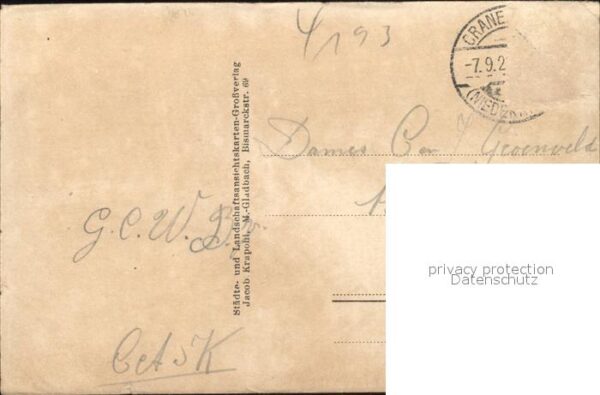 4193
CRANE
-7.9.2
(NIEDER
Dames
Groenveld
G.C.W.
Städte- und Landschaftsansichtskarten-Großverlag
Jacob Krapohl, M.-Gladbach, Bismarckstr. 69
privacy protection
Datenschutz